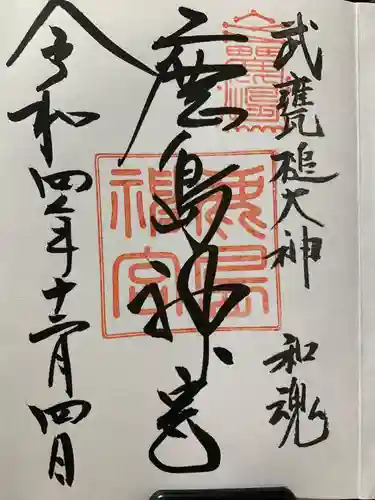 武甕槌大神 和魂
鹿島神宮
鹿島神宮
令和四年十二月四日